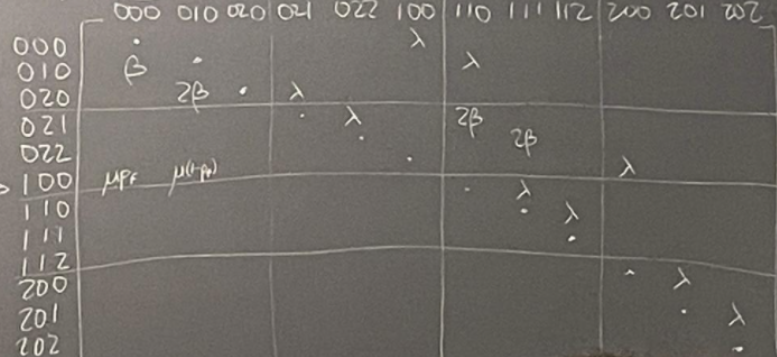 000 010 020 021 022 100 110 111 112 200 201 202
000 · λ
010 β · λ
020 2β · λ
021 · λ 2β
022 · 2β
100 μpf μ(1-pf) · λ
110 · λ
111 · λ
112 ·
200 · λ
201 · λ
202 ·